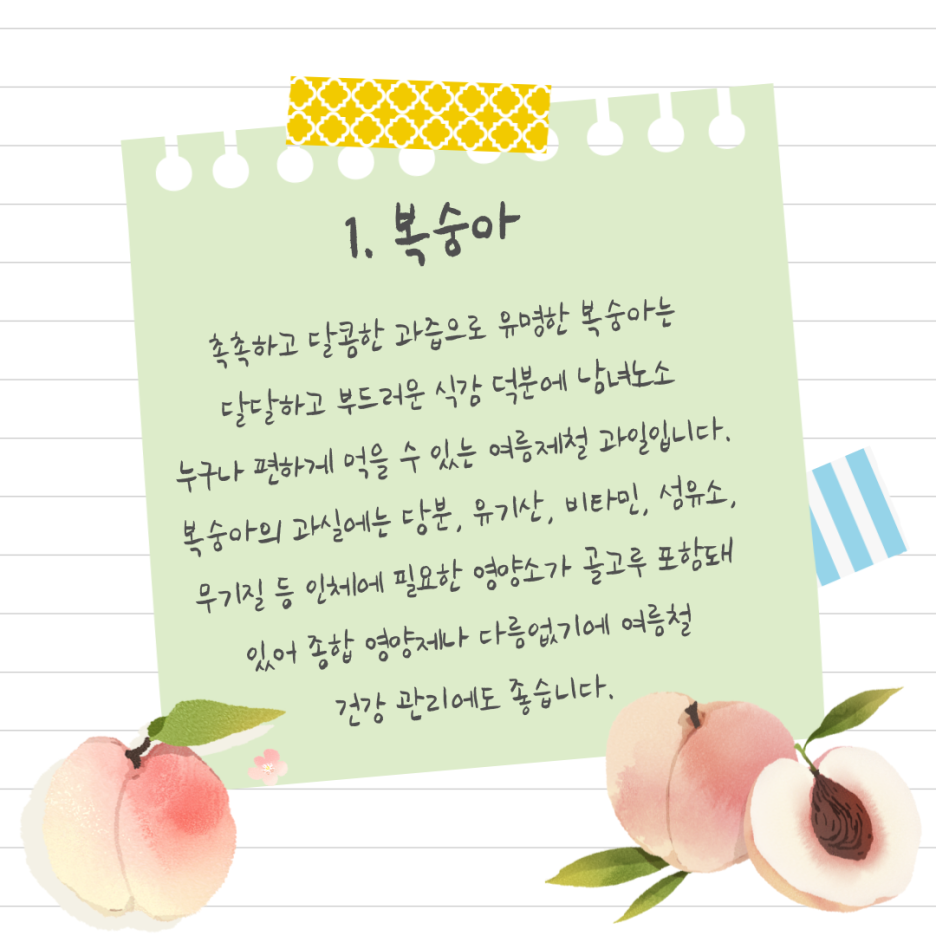 1. 복숭아
촉촉하고 달콤한 과즙으로 유명한 복숭아는
달달하고 부드러운 식감 덕분에 남녀노소
누구나 편하게 먹을 수 있는 여름제철 과일입니다.
복숭아의 과실에는 당분, 유기산, 비타민, 섬유소,
무기질 등 인체에 필요한 영양소가 골고루 포함돼
있어 종합 영양제나 다름없기에 여름철
건강 관리에도 좋습니다.